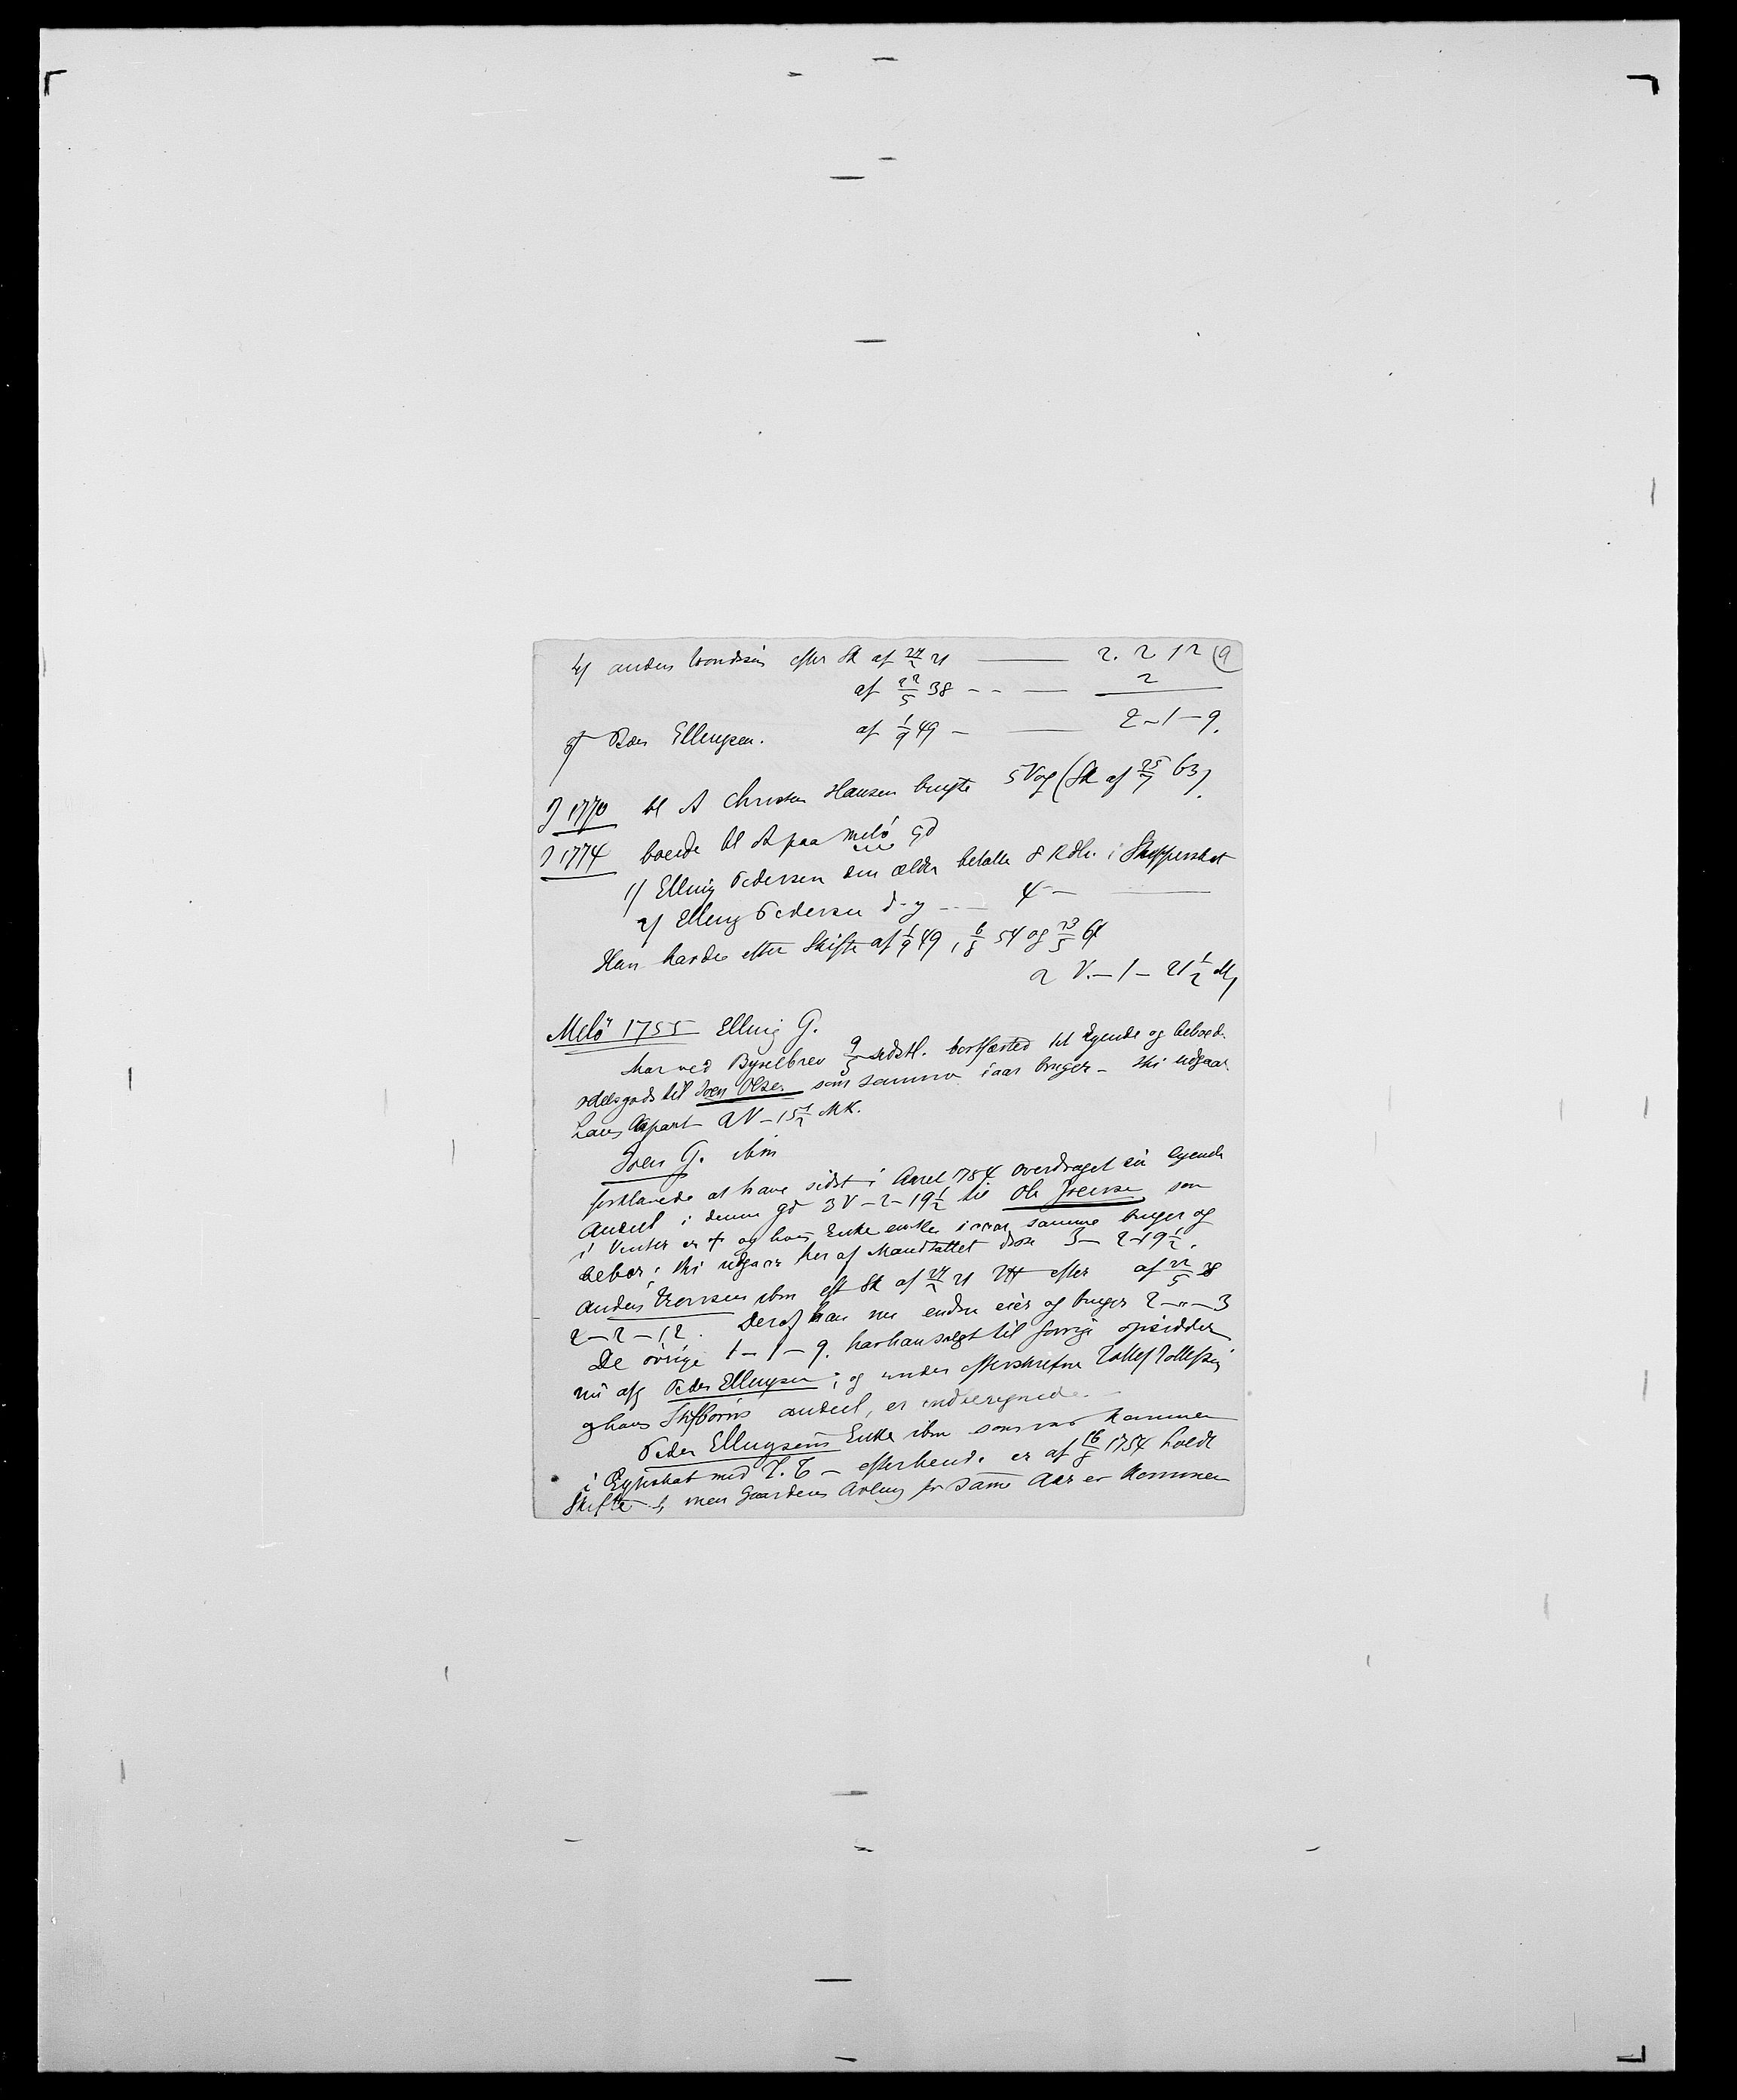 4) Anders efter Sk af 24/2 21 — 2. 2 12 (9
af 22/5 38 - - — 2
5) Peder Ellingsen. af 1/9 49 - — 2-1-9.
I 1770 bl A Christen Hansen brugte 5 Vog (Sk af 25/7 63)
I 1774 boede bl A paa Melö Gd
1/ Elling Pedersen den ældre betalte 8 Rdlr. i Skoppeskat
2/ Elling Pedersen d. y --- 4 - —
Han havde efter Skifte af 1/9 49, 6/8 54 og 23/5 64
2 V. - 1 - 21 1/2 M
Melö 1755 Elling G.
har ved Bygselbrev 9/5 sidstl. bortfæsted sit Egende og beboed.
odelsgods til Joen Olsen som samme iaar bruger - thi udgaar
hans Apart 2V - 15 1/2 Mk.
Joen G. ibm
forklarede at have sidst i Aaret 1754 overdraget sin egende
Andeel i denne gd 3V - 2 - 19 1/2 til Ole Joensen som
i Vinter er + og hans Enke enke iaar samme bruger og
bebor; thi udgaar her af Mandtallet disse 3 - 2-19 1/2.
Anders ibm eft Sk af 24/2 21 efter af 22/5 38
2-2-12. Deraf han nu endnu eier og bruger 2-"-3
De övrige 1-1-9. har han solgt til forrige opsidder
nu afg Peder Ellingsen; og under efterskrefne Tollef Tollefsen
og hans Stifbörns andeel, er indberegnede.
Peder Ellingsens Enke ibm som var kommen
i Egteskab med T. T - efterhends er af 16/8 1754 holdt
Skifte -, men Gaardens Avling for samme Aar er kommen